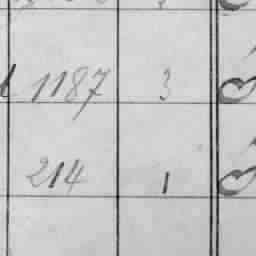 1187 3
214 1